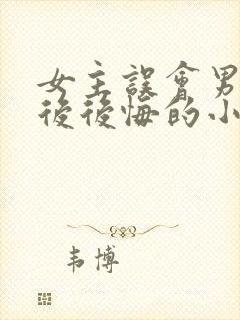 女主誤會男
後後悔的小
韦博